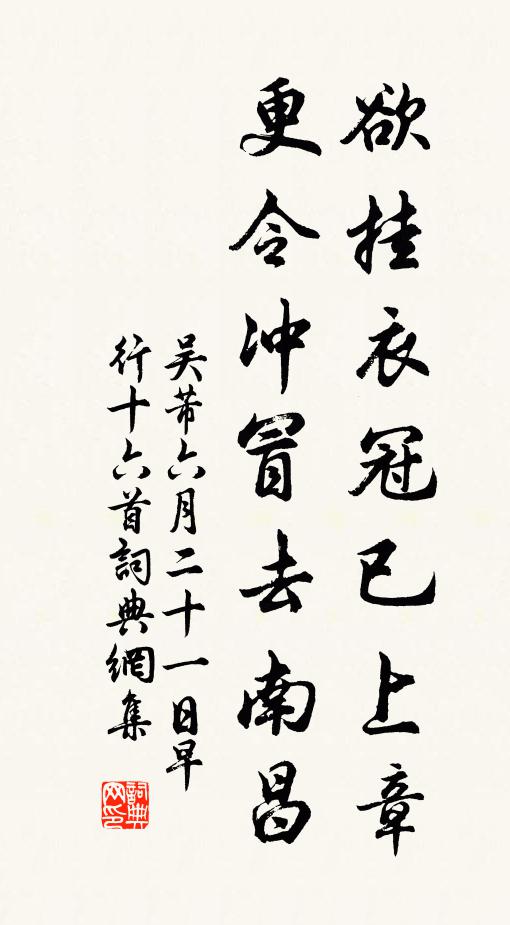 欲挂衣冠已上章
更令冲冒去南昌
吴芾六月二十一日早
行十六首詞典網集
詞典网印